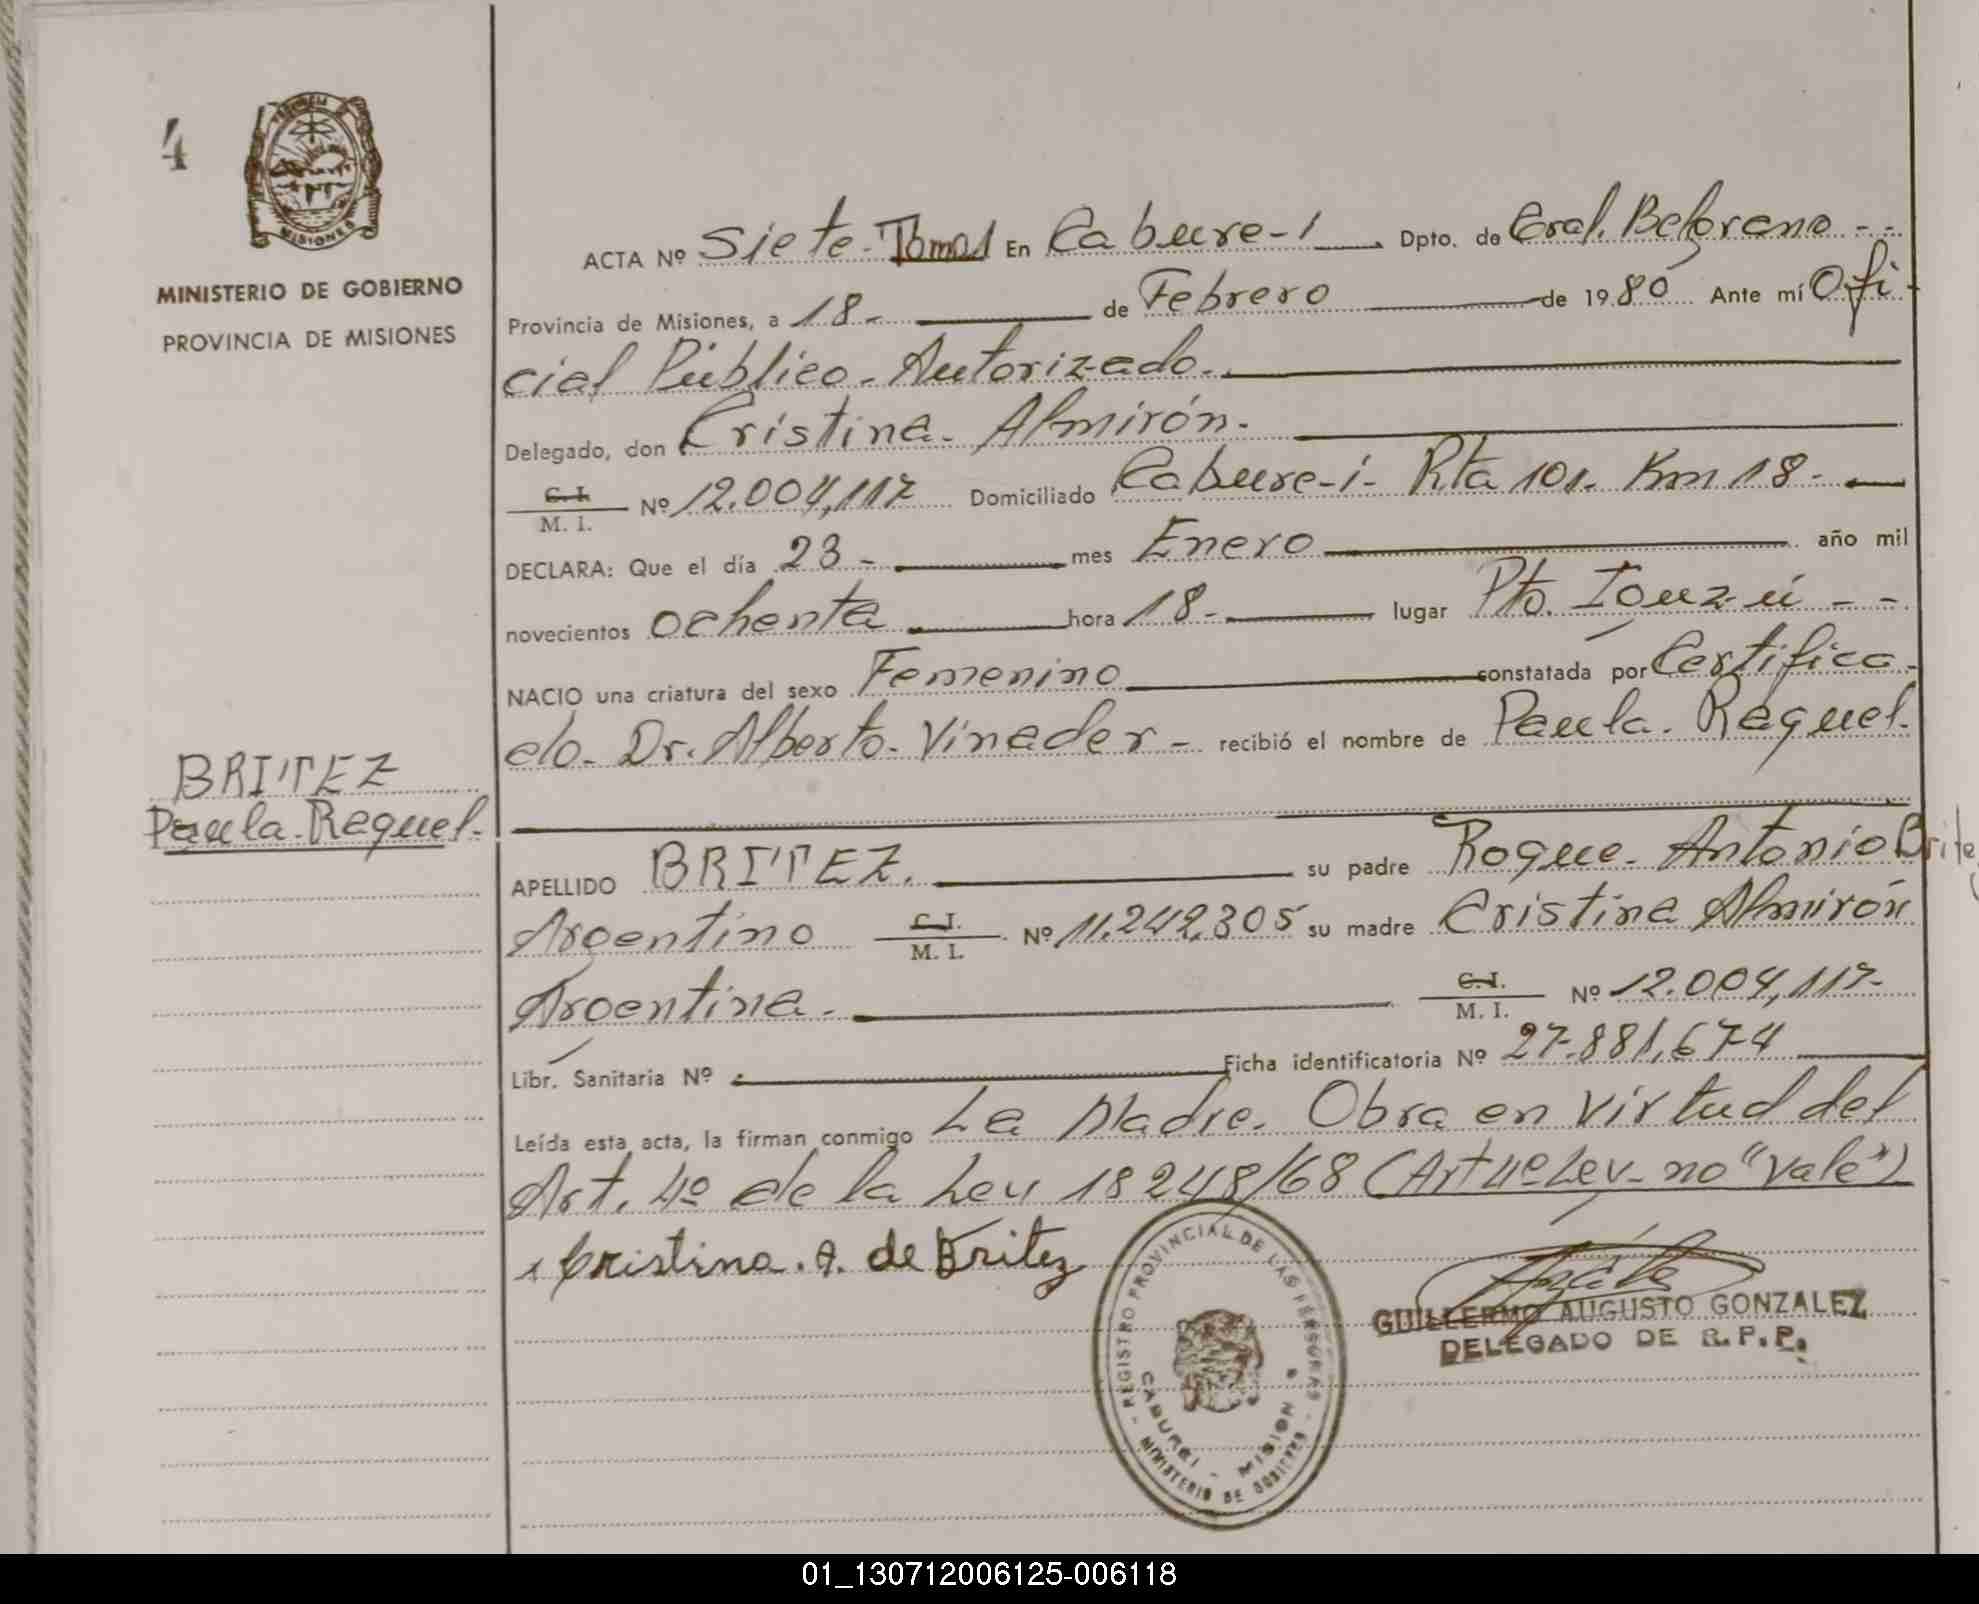 4
PROVINCIA
MISIONES
MINISTERIO DE GOBIERNO
PROVINCIA DE MISIONES
ACTA Nº Siete-Tomo1 En Cabure-í Dpto. de Gral. Belgrano - -
Provincia de Misiones, a 18- de Febrero de 1980 Ante mí Ofi-
cial Público-Autorizado.
Delegado, don Cristina- Almirón.
C. I.
M. I. Nº 12.004,117 Domiciliado Cabure-í- Rta 101- Km 18-
DECLARA: Que el día 23- mes Enero año mil
novecientos ochenta hora 18- lugar Pto. Iguzú - -
NACIO una criatura del sexo Femenino constatada por Certifica-
do- Dr. Alberto- Vinader- recibió el nombre de Paula- Raquel.
BRITEZ
Paula-Raquel-
APELLIDO BRITEZ. su padre Roque- Antonio Brite
Argentino C. I. M. I. Nº 11.242,305 su madre Cristina Almirón
Argentina. C. I. M. I. Nº 12.004,117-
Libr. Sanitaria Nº Ficha identificatoria Nº 27.881,674
Leída esta acta, la firman conmigo La Madre. Obra en virtud del
Art. 4º de la Ley 18248/68 (Art 4º Ley- no "vale")
Cristina. A. de Britez
REGISTRO PROVINCIAL DE LAS PERSONAS
CABUREI - MISIONES
MINISTERIO DE GOBIERNO
GUILLERMO AUGUSTO GONZALEZ
DELEGADO DE R.P.P.
01_130712006125-006118